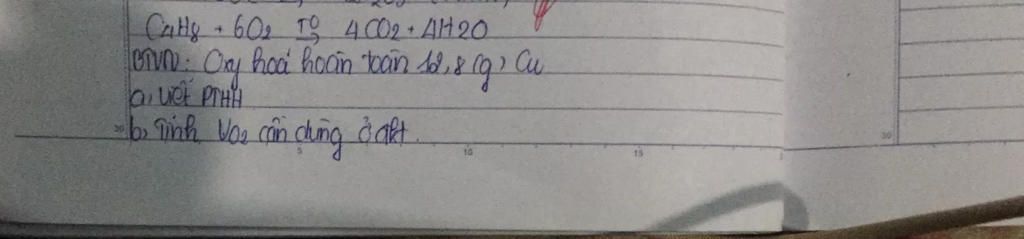 C4H8 + 6O2 to 4CO2 + 4H2O
BTVN: Oxy hoá hoàn toàn 12,8 (g) Cu
a, Viết PTHH
b, Tính VO2 cần dùng ở đkt
20
5 10 15
30